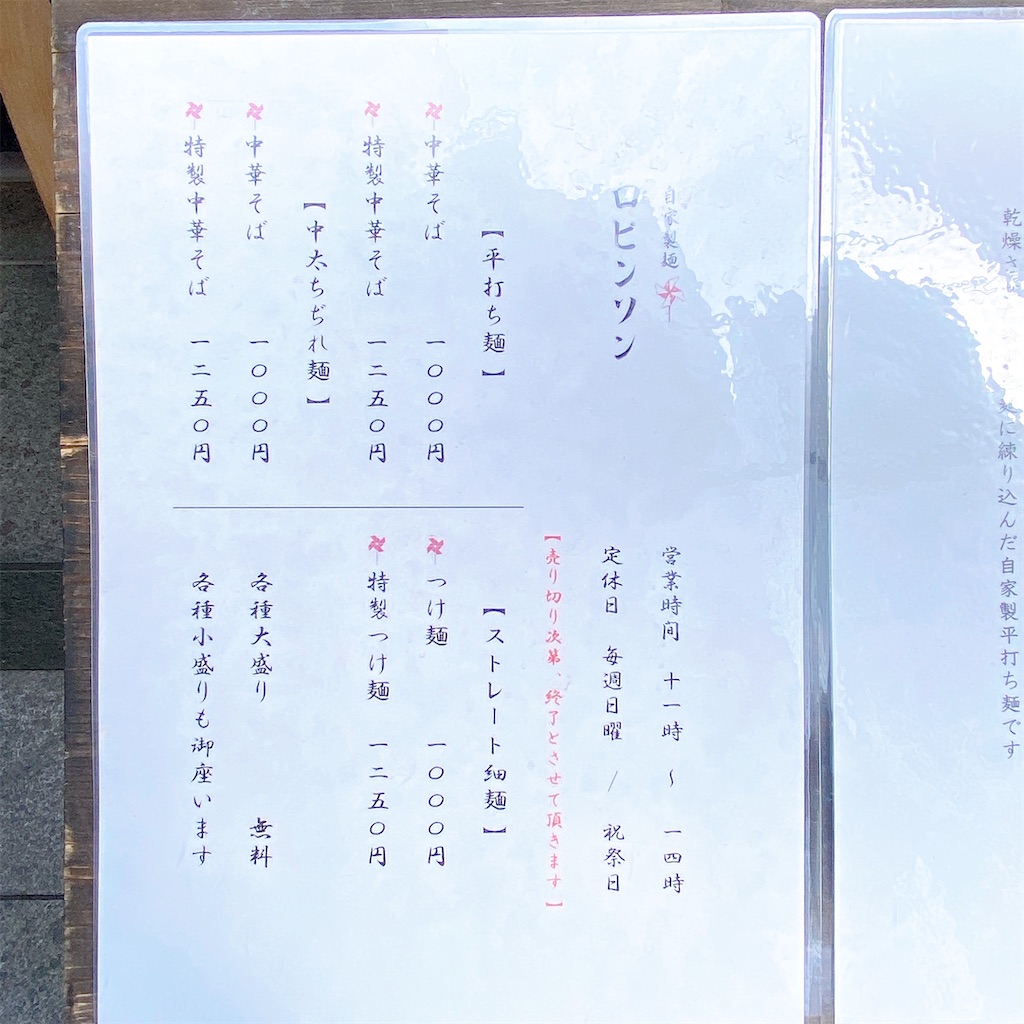 自家製麺
ロビンソン
営業時間 十一時 ~ 一四時
定休日 毎週日曜 / 祝祭日
【売り切り次第、終了とさせて頂きます】
【平打ち麺】
中華そば 一〇〇〇円
特製中華そば 一二五〇円
【中太ちぢれ麺】
中華そば 一〇〇〇円
特製中華そば 一二五〇円
【ストレート細麺】
つけ麺 一〇〇〇円
特製つけ麺 一二五〇円
各種大盛り 無料
各種小盛りも御座います
乾燥さ
に練り込んだ自家製平打ち麺です